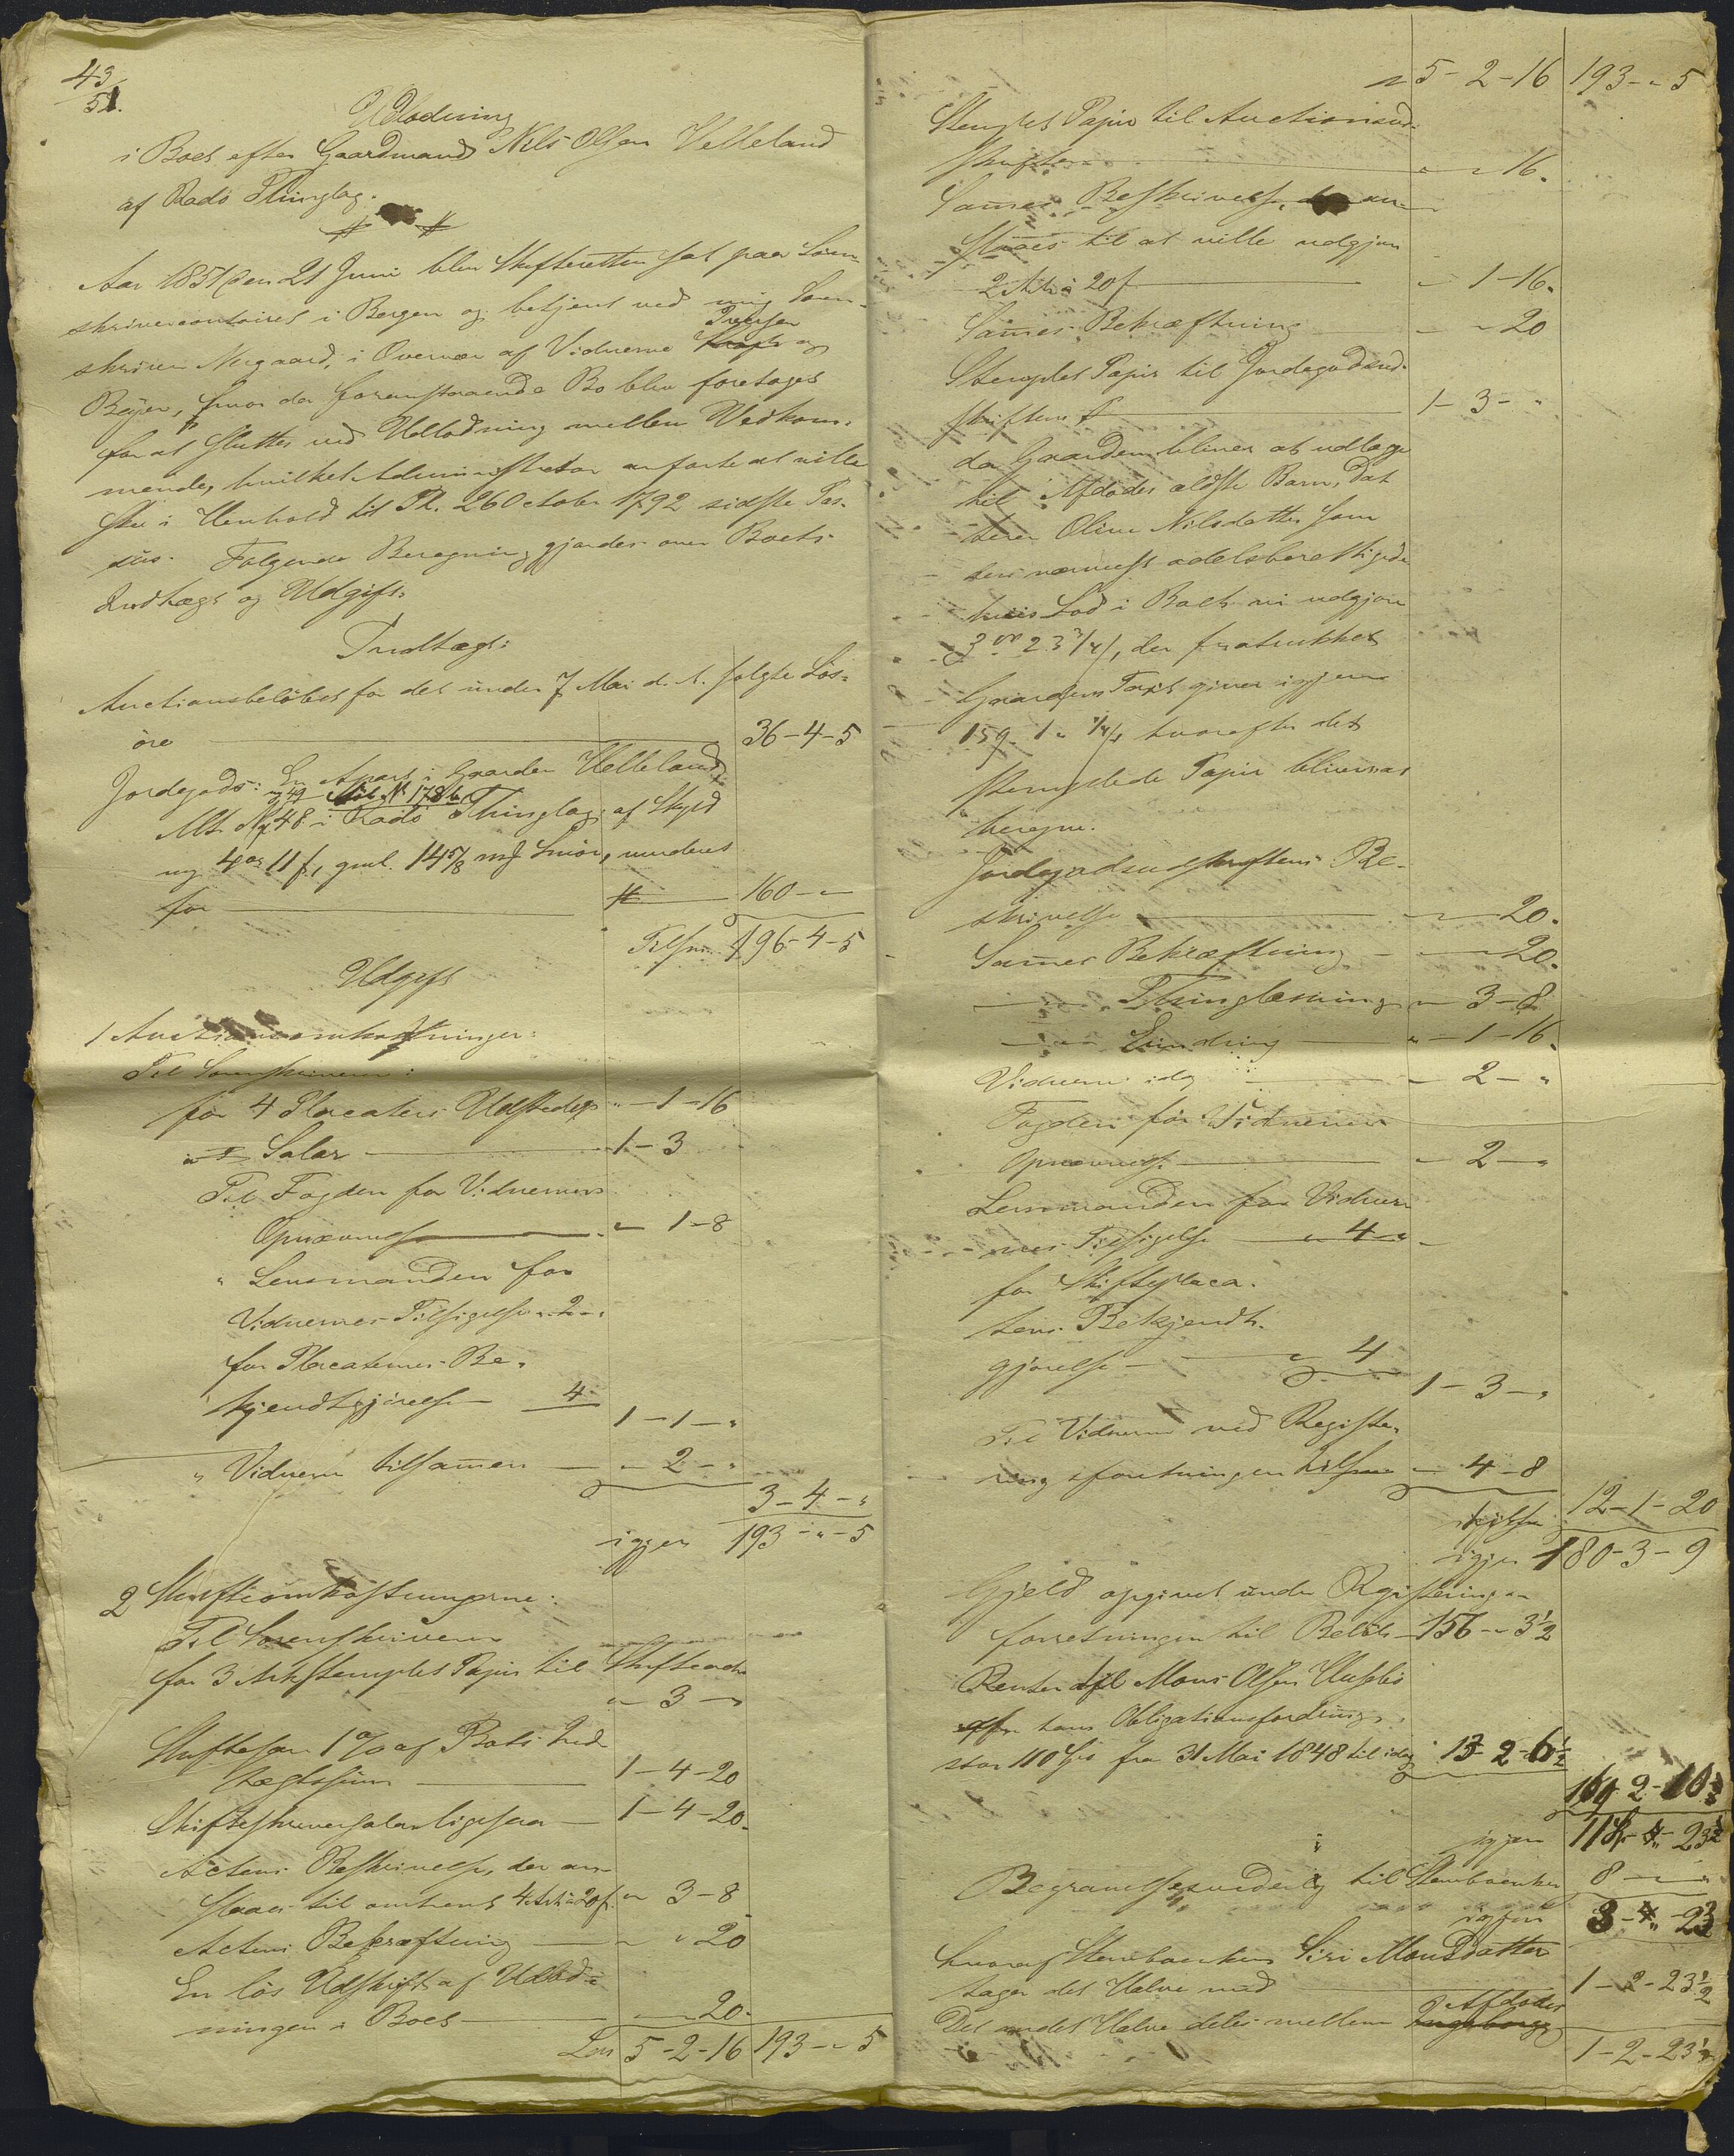 43/51.
Udlodning
i Boet efter Gaardmand Nils Olsen Helleland
af Radö Thinglag.
Aar 1851 den 21 Juni blev Skifteretten sat paa Soren-
skrivercontoiret i Bergen og betjent ved mig Soren-
skriver Nergaard, i Overvær af Vidnerne Iversen og
Böyer, hvor da foranstaaende Bo blev foretaget
for at sluttes ved Udlodning mellem Vedkom-
mende, hvilket Administrator anförte at ville
skee i Henhold til Pl. 26 October 1792 sidste Pas-
sus. Fölgende Beregning gjordes over Boets
Indtægt og Udgift:
Indtægt:
Auctionsbelöbet for det under 7 Mai d. A. solgte Lös-
öre 36-4-5
Jordegods: En Anpart i Gaarden Helleland,
Mt. No 48 i Radö Thinglag af Skyld
ny 4 ort 11 s, gml. 14 5/8 mk Smör, vurderet
for 160-"-"
Tilsm. 196-4-5
Udgift
1 Auctionsomkostninger:
Til Sorenskriveren:
for 4 Placaters Udstedelse "-1-16
" Salær 1-3
Til Fogden for Vidnernes
Opnævnelse "-1-8
" Lensmanden for
Vidnernes Tilsigelse "-2-"
for Placaternes Be-
kjendtgjörelse 4
1-1-"
" Vidnerne tilsammen "-2-"
3-4-"
igjen 193-"-5
2 Skifteomkostningerne:
Til Sorenskriveren
for 3 Ark stemplet Papir til Skifteacten
"-3-"
Skiftesam 1% af Boets Ind-
tægtssum 1-4-20
Skifteskriversalær ligesaa 1-4-20.
Actens Beskrivelse, der an-
slaaes til omtrent 4 Ark à 20 s. "-3-8
Actens Bekræftning "-"-20
En lös Udskrift af Udlod-
ningen i Boet "-"-20.
Lars 5-2-16 193-"-5
5-2-16 193-"-5
Stemplet Papir til Auctionsud-
skriften "-"-16.
Sammes Beskrivelse, an-
slaaes til at ville udgjöre
2 Ark à 20 s "-1-16.
Sammes Bekræftning "-"-20
Stemplet Papir til Jordegodsud-
skriften 1-3-"
da Gaarden bliver at udlægge
til Afdödes ældste Barn, Dat-
teren Oline Nilsdatter som
den nærmest odelsberettigede
hvis Lod i Boet vil udgjöre
3 ort 23 3/4 s, der fratrukket
Gaardens Taxt giver igjen
159. 1 " 1/4 s hvorefter det
stemplede Papir bliver at
beregne.
Jordegodsudskriftens Be-
skrivelse "-"-20.
Sammes Bekræftning "-"-20.
" Thinglæsning "-3-8
" Sending "-1-16.
Vidnerne idag "-2-"
Fogden for Vidnernes
Opnævnelse "-2-"
Lensmanden for Vidner-
nes Tilsigelse "-4-"
for Skifteplaca-
tens Bekjendt-
gjörelse "-4
1-3-"
Til Vidnerne ved Registe-
ringsforretningen tilsm. "-4-8
tilsm. 12-1-20
igjen 180-3-9
Gjeld opgivet under Registerings-
forretningen til Belöb 156-"-3 1/2
Renter til Mons Olsen Huseby
af hans Obligationsfordring,
stor 110 Spd fra 31 Mai 1848 til idag 13-2-6 1/2
169-2-10
igjen 11-"-23 1/2
Begravelsesvederlag til Stervboenken 8-"-"
igjen 3-"-23
hvoraf Stervboenken Siri Monsdatter
tager det Halve med 1-2-23 1/2
Det andet Halve deles mellem Afdödes
1-2-23 1/2